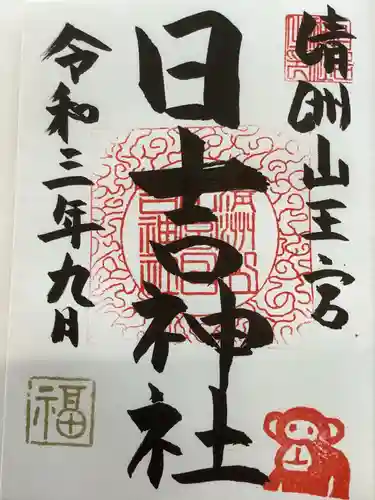 清洲山王宮
日吉神社
令和三年九日
福